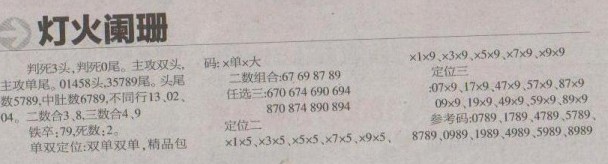 灯火阑珊
判死3头,判死0尾。主攻双头,
主攻单尾。01458头,35789尾。头尾
数5789,中肚数6789,不同行13、02、
04。二数合3、8,三数合4、9
铁卒:79,死数:2。
单双定位:双单双单,精品包
码:x单x大
二数组合:67 69 87 89
任选三:670 674 690 694
870 874 890 894
定位二
x1x5、x3x5、x5x5、x7x5、x9x5、
x1x9、x3x9、x5x9、x7x9、x9x9
定位三
:07x9、17x9、47x9、57x9、87x9
09x9、19x9、49x9、59x9、89x9
参考码:0789、1789、4789、5789、
8789、0989、1989、4989、5989、8989